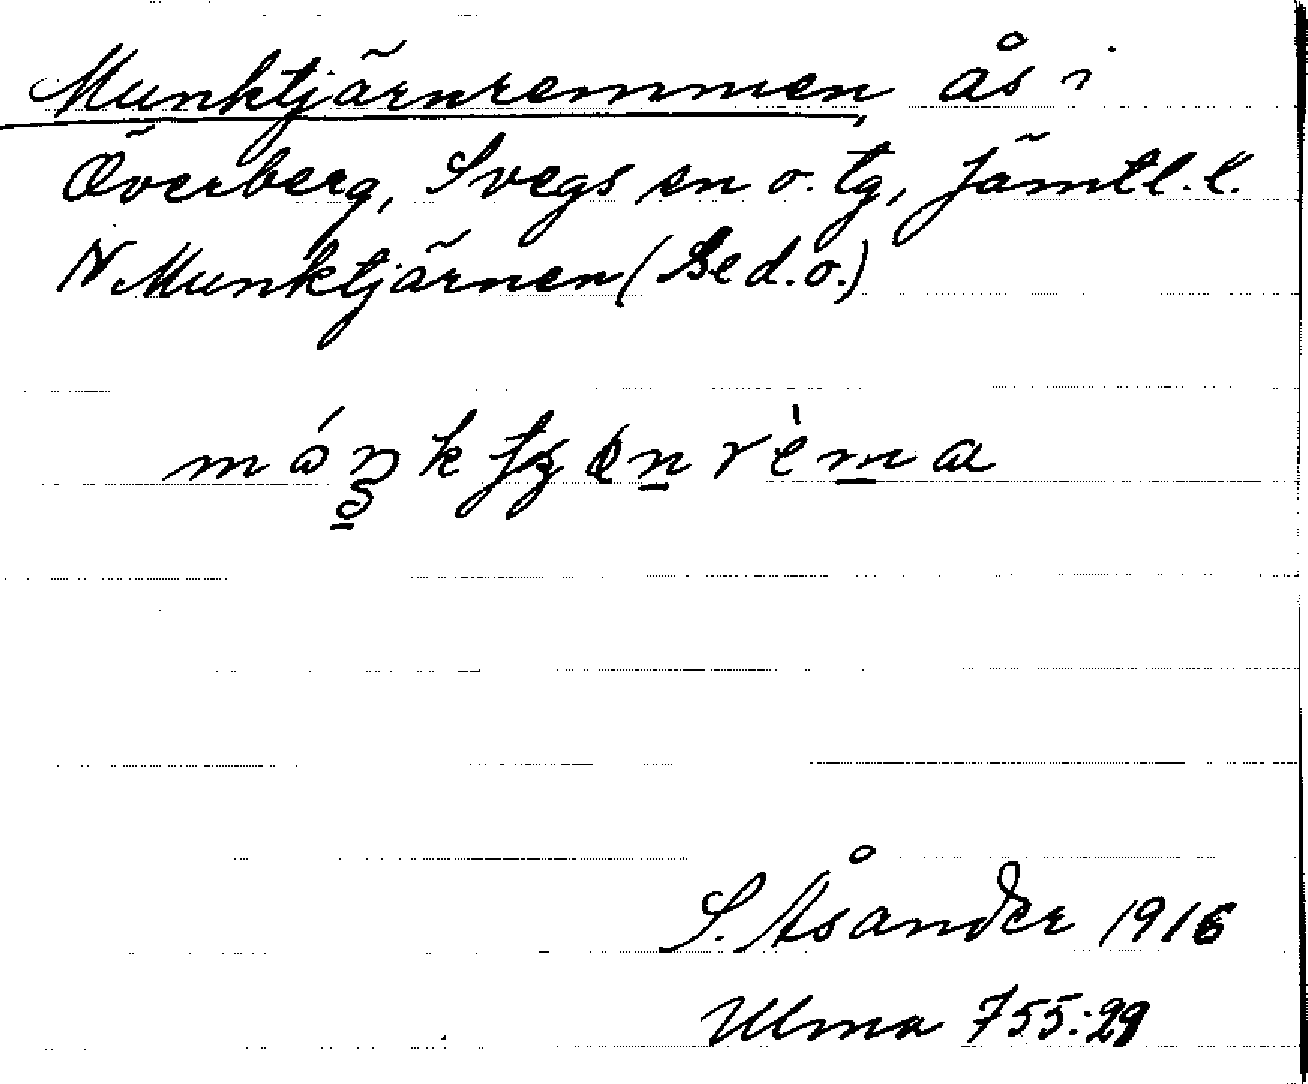 Munktjärnremmen, ås i
Överberg, Svegs sn o. tg, Jämtl. l.
N Munktjärnen (Se d.o.)
S. Åsander 1916
Ulma 755:29